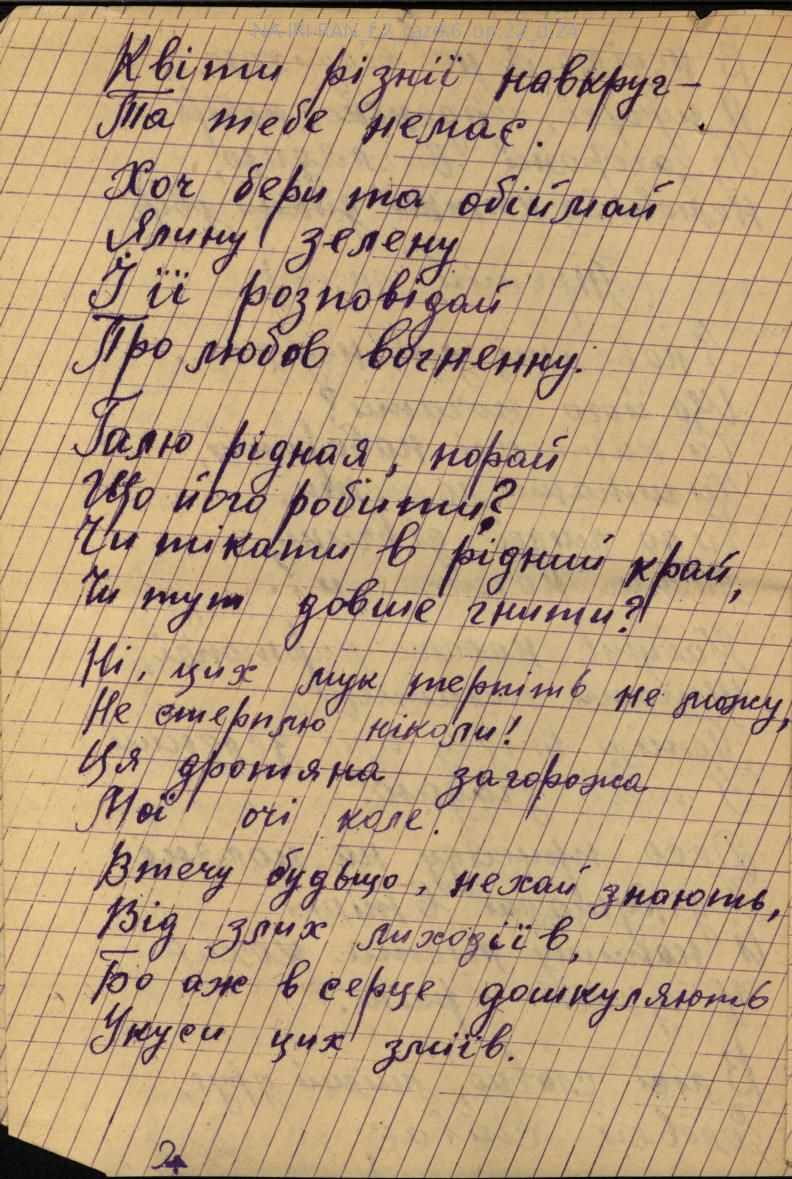 NA IRI RAN_f.2_razd.6_op.22_d.24
Квіти різнії навкруг-
Та тебе немає.
Хоч бери та обіймай
Ялину зелену
Й її розповідай
Про любов вогненну.
Галю рідная, порай
Що його робити?
Чи тікати в рідний край,
Чи тут довше гнити?
Ні, цих мук терпіть не можу,
Не стерплю ніколи!
Ця дротяна загорожа
Мої очі коле.
Втечу будьщо, нехай знають,
Від злих лиходіїв,
Бо аж в серце дошкуляють
Укуси цих зміїв.
2